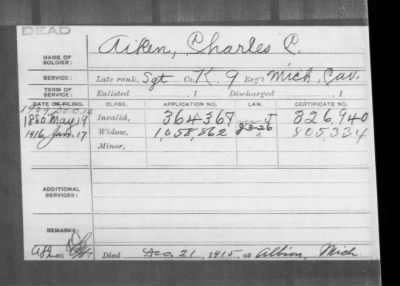 DEAD
NAME OF SOLDIER: Aiken, Charles C.
SERVICE: Late rank, Sgt Co. K, 9 Reg't Mich. Cav.
TERM OF SERVICE: Enlisted , 1 Discharged , 1
DATE OF FILING. CLASS. APPLICATION NO. LAW. CERTIFICATE NO.
1880 May 19 Invalid, 364367 J 326,940
1916 Jan. 17 Widow, 1,058,862 805,334
Minor,
ADDITIONAL SERVICES:
REMARKS:
Died Dec. 21, 1915, at Albion, Mich